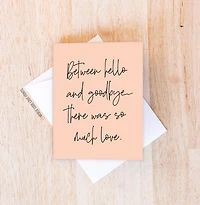 Between hello
and goodbye
there was so
much love.